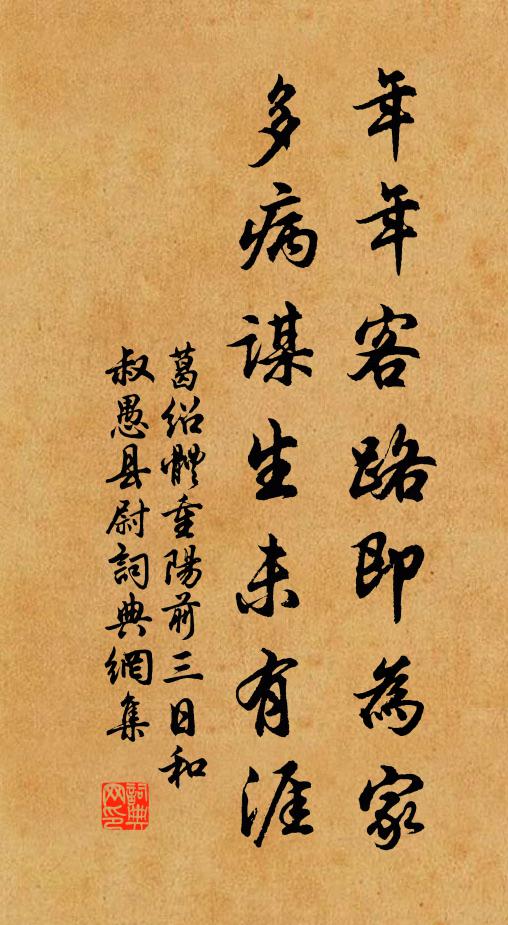 年年客路即為家
多病謀生未有涯
葛紹體重陽前三日和
叔愚县尉詞典網集
詞典网印